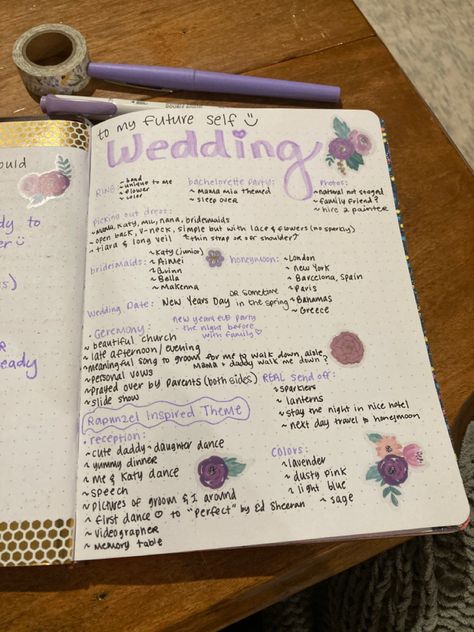 to my future self
Wedding
RING:
~ band
~ unique to me
~ flower
~ color
bachelorette party:
~ mama mia themed
~ sleep over
Photos:
~ natural not staged
~ family friend?
~ hire 2 painter
Picking out dress:
~ mama, Katy, mil, nana, bridemaids
~ open back, v-neck, simple but with lace & flowers (no sparkly)
~ tiara & long veil
~ thin strap or off shoulder?
bridemaids:
~ Katy (junior)
~ Aimei
~ Quinn
~ Bella
~ Makenna
honeymoon:
~ London
~ New York
~ Barcelona, Spain
~ Paris
~ Bahamas
~ Greece
Wedding Date: New Years Day OR sometime in the spring
Ceremony:
new years eve party
- the night before with family
~ beautiful church
~ late afternoon / evening
~ meaningful song to groom for me to walk down aisle
~ personal vows
Mama + daddy walk me down?
~ prayed over by parents (both sides)
~ slide show
REAL send off:
~ sparklers
~ lanterns
~ stay the night in nice hotel
~ next day travel to honeymoon
Rapunzel Inspired Theme
reception:
~ cute daddy-daughter dance
~ yummy dinner
~ me & Katy dance
~ speech
~ pictures of groom & I around
~ first dance to "Perfect" by Ed Sheeran
~ videographer
~ memory table
Colors:
~ lavender
~ dusty pink
~ light blue
~ sage